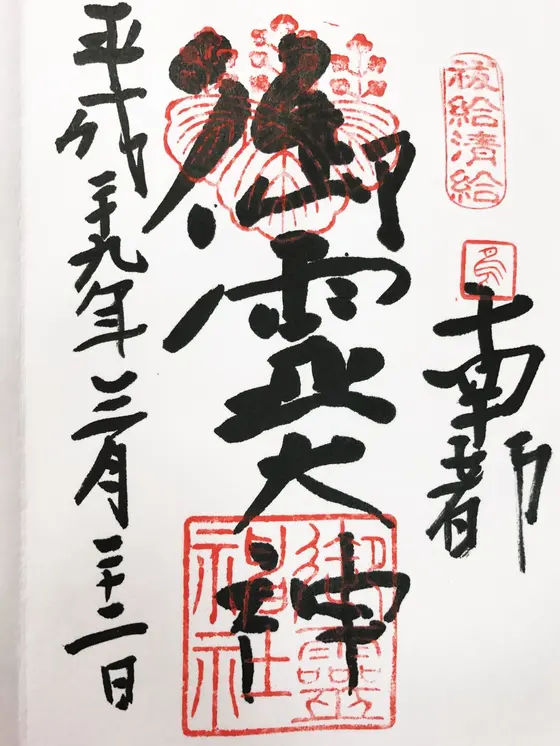 祓給清給
南都
御霊大神
御靈神社
平成二十九年三月二十二日